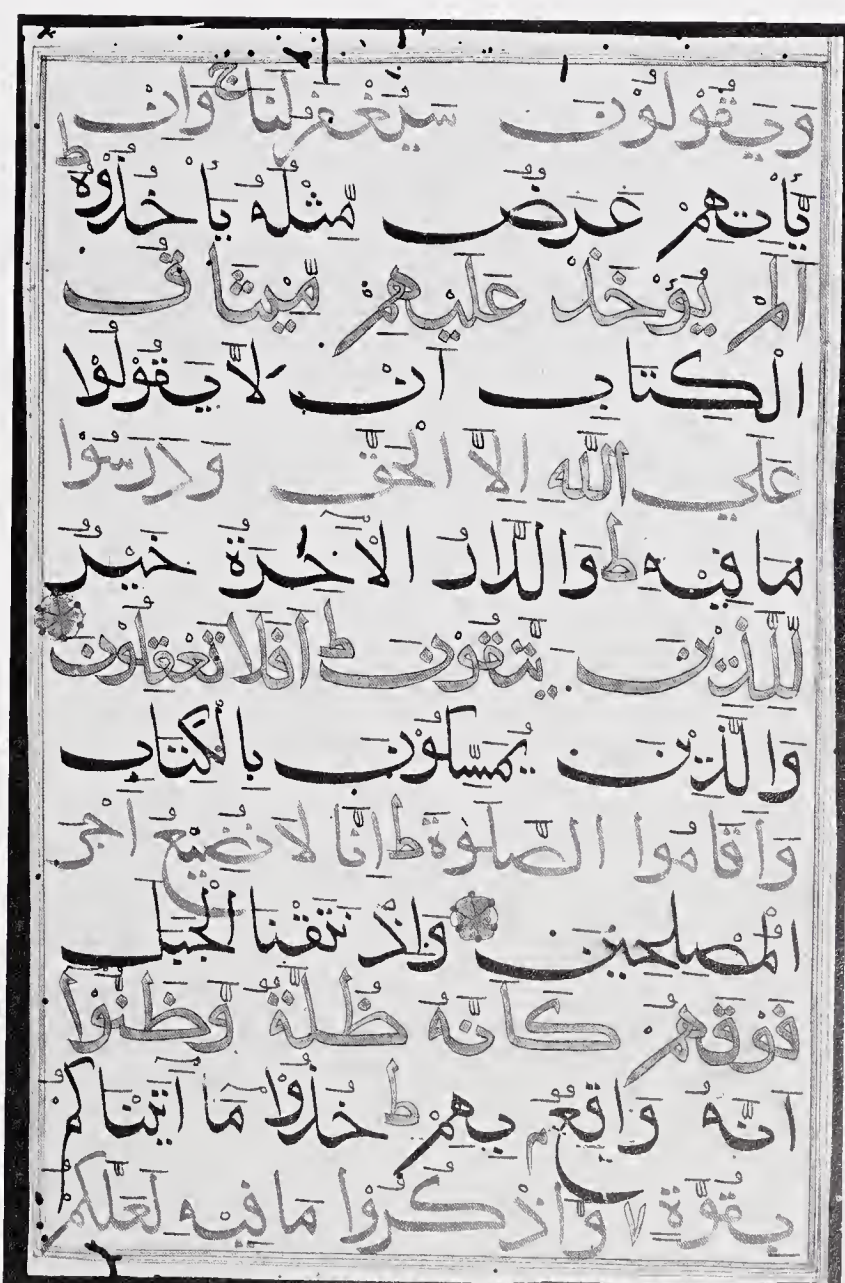 وَيَقُولُونَ سَيُغْفَرُ لَنَا ج وَاِنْ
يَّأْتِهِمْ عَرَضٌ مِّثْلُهُ يَأْخُذُوْهُ ط
اَلَمْ يُؤْخَذْ عَلَيْهِمْ مِّيْثَاقُ
الْكِتَابِ اَنْ لَّا يَقُوْلُوْا
عَلَي اللّٰهِ اِلَّا الْحَقَّ وَدَرَسُوْا
مَا فِيْهِ ط وَالدَّارُ الْاٰخِرَةُ خَيْرٌ
لِّلَّذِيْنَ يَتَّقُوْنَ ط اَفَلَا تَعْقِلُوْنَ
وَالَّذِيْنَ يُمَسِّكُوْنَ بِالْكِتَابِ
وَاَقَامُوا الصَّلٰوةَ ط اِنَّا لَا نُضِيْعُ اَجْرَ
الْمُصْلِحِيْنَ وَاِذْ نَتَقْنَا الْجَبَلَ
فَوْقَهُمْ كَاَنَّهُ ظُلَّةٌ وَّظَنُّوْا
اَنَّهُ وَاقِعٌ م بِهِمْ ط خُذُوْا مَا اٰتَيْنَاكُمْ
بِقُوَّةٍ لا وَّاذْكُرُوْا مَا فِيْهِ لَعَلَّكُمْ